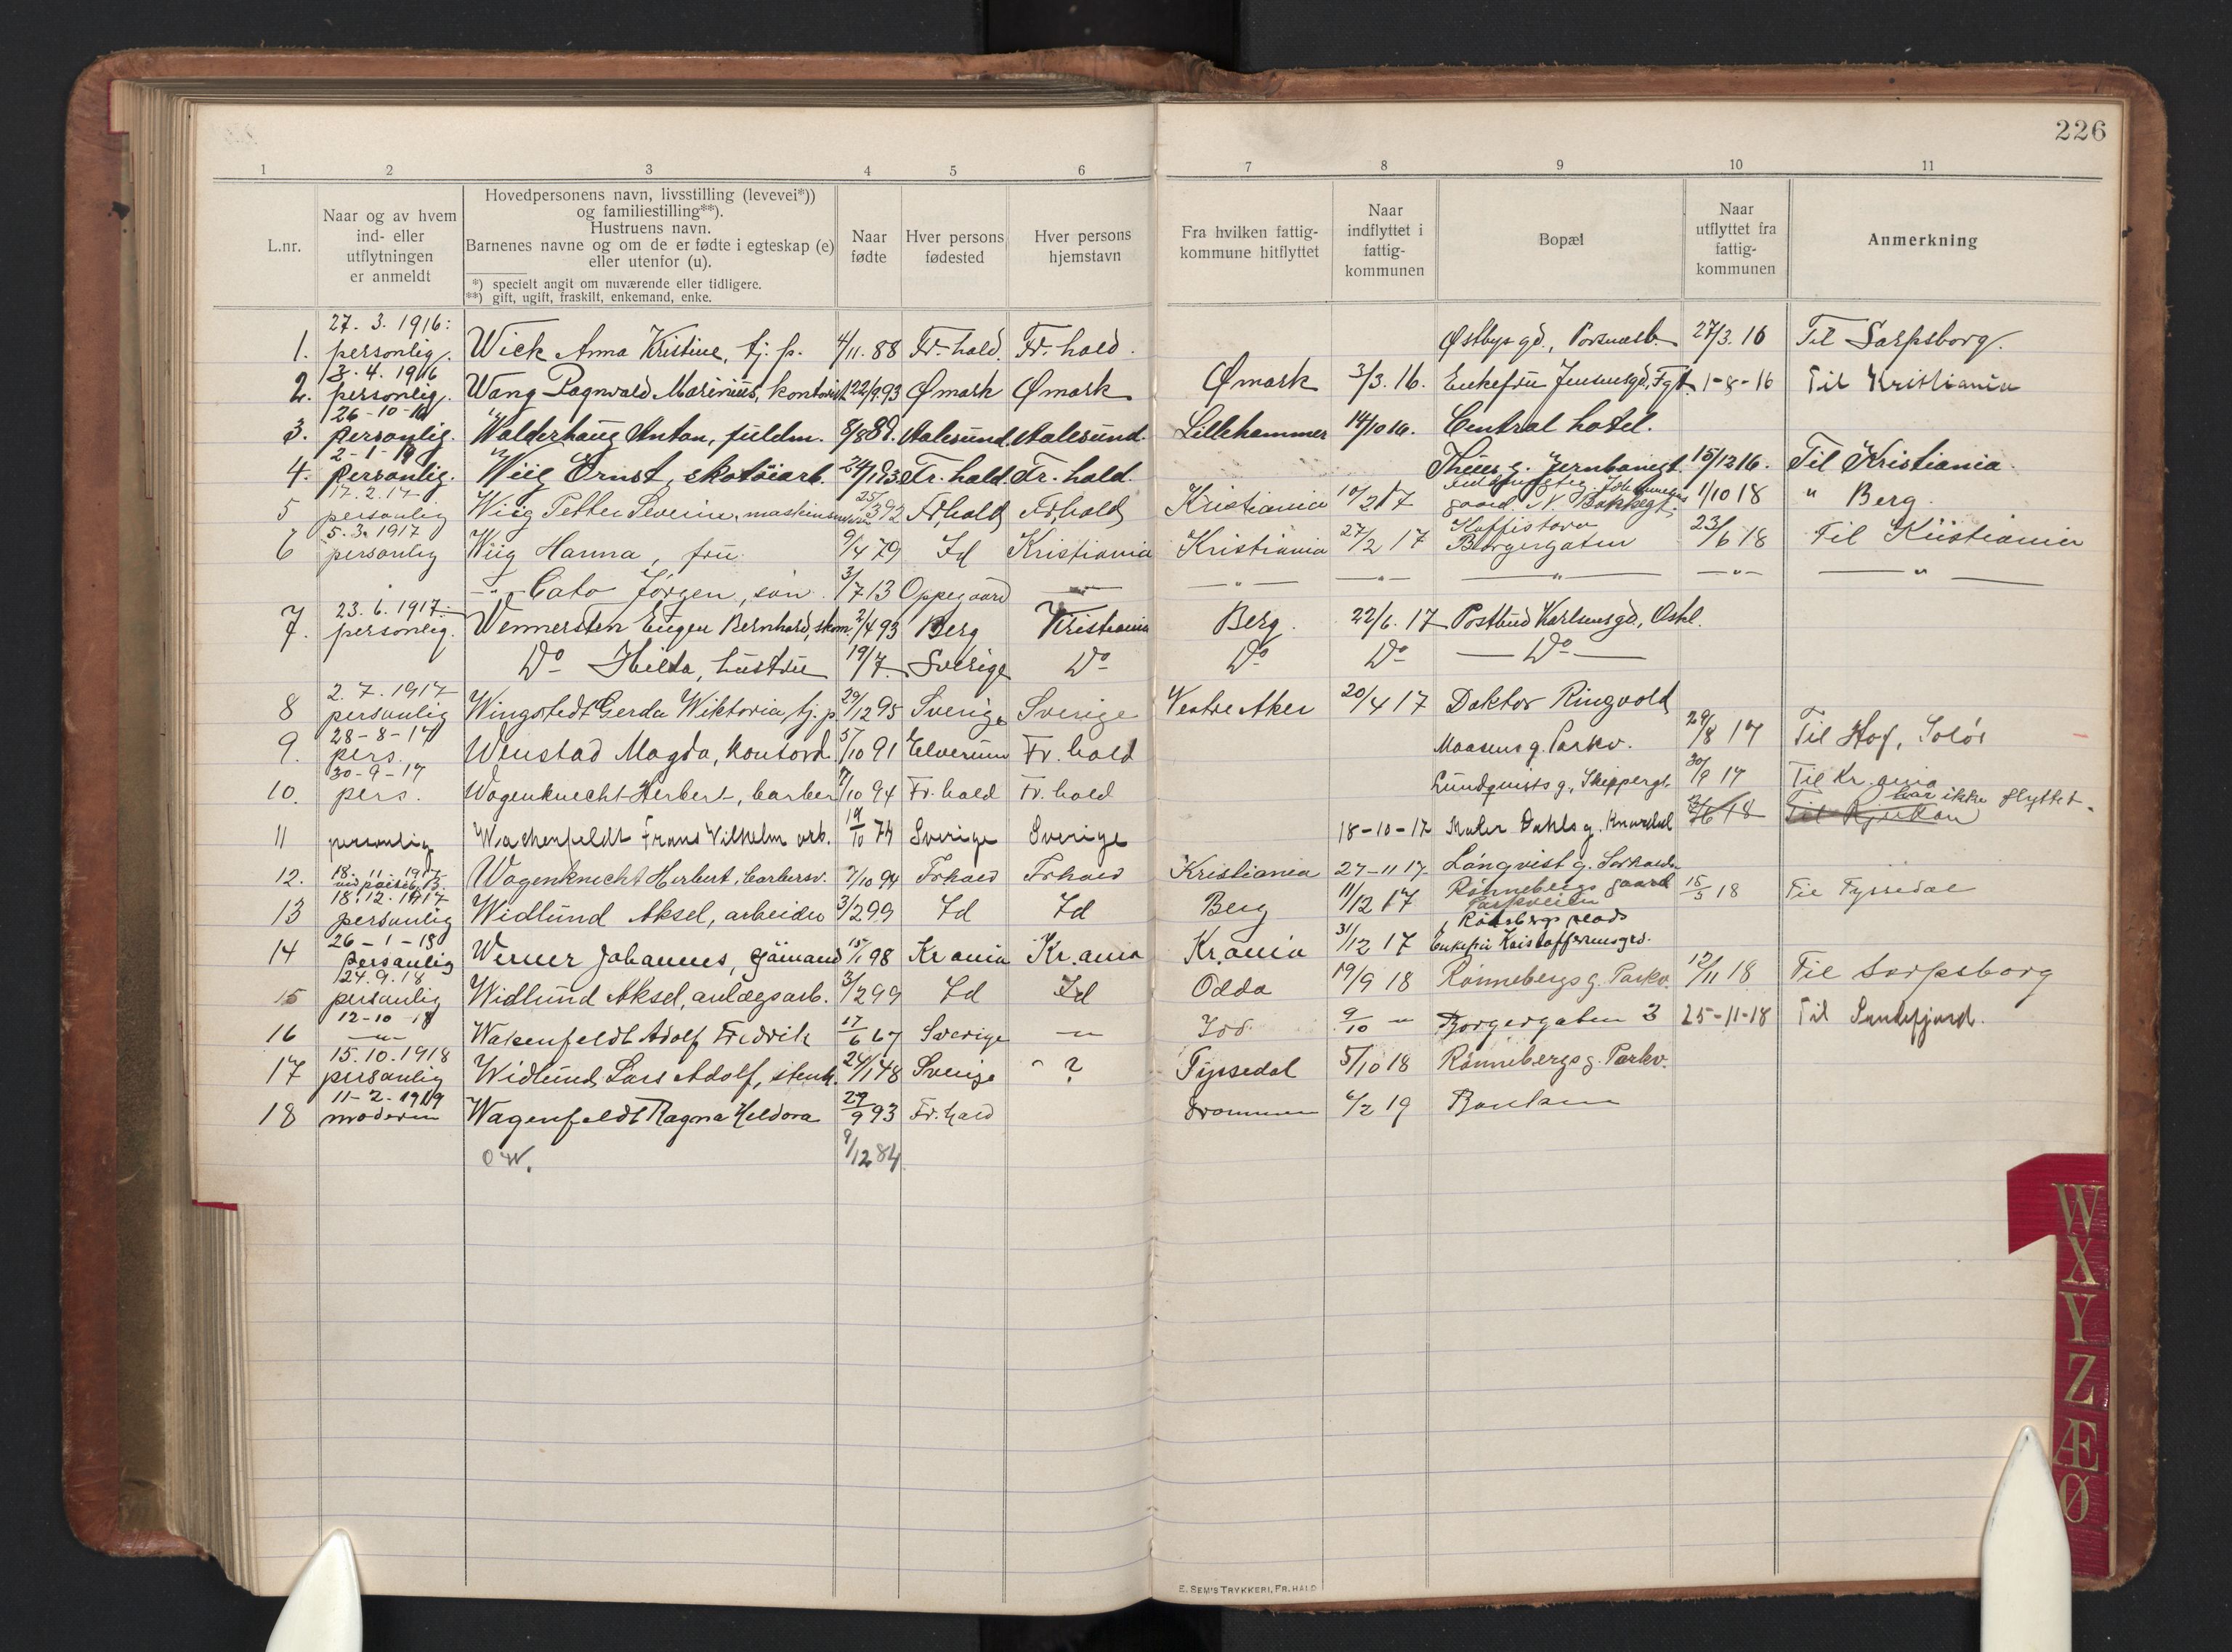 226
1 2 3 4 5 6 7 8 9 10 11
L.nr.
Naar og av hvem
ind- eller
utflytningen
er anmeldt
Hovedpersonens navn, livsstilling (levevei*))
og familiestilling**).
Hustruens navn.
Barnenes navne og om de er fødte i egteskap (e)
eller utenfor (u).
*) specielt angit om nuværende eller tidligere.
**) gift, ugift, fraskilt, enkemand, enke.
Naar
fødte
Hver persons
fødested
Hver persons
hjemstavn
Fra hvilken fattig-
kommune hitflyttet
Naar
indflyttet i
fattig-
kommunen
Bopæl
Naar
utflyttet fra
fattig-
kommunen
Anmerkning
27. 3. 1916:
1. personlig. Wiek Anna Kristine, tj. p. 4/11. 88 Fr. hald. Fr. hald. Østbys gd., 27/3. 16 Til Sarpsborg.
3. 4. 1916
2. personlig. Wang Ragnvald Marinius, kontorist 22/9.93 Ømark Ømark Ømark 3/3. 16. Enkefru Jensensgd, Fgt. 1-8-16 Til Kristiania
26-10-16
3. Personlig. Walderhaug Anton, fuldm. 8/8 88. Aalesund. Aalesund. Lillehammer 14/10 16. Central hotel.
2-1-19
4. Personlig. Wiig Ernst, skotöiarb. 24/1 93 Fr. hald. Fr. hald. Jernbanegt. 15/12 16. Til Kristiania.
17.2.17
5 personlig Wiig Petter Severin, 25/3 92 Frhald Frhald Kristiania 10/2 17 gaard. N. Bakkegt. 1/10 18 " Berg.
5.3.1917
6 personlig Wiig Hanna, fru 9/4 79 Id Kristiania Kristiania 27/2 17 Borgergaten 23/6 18 Til Kristiania
-"- Cato Jörgen, sön. 3/7 13 Oppegaard -"- -"- -"- -"- -"- -"-
23. 6. 1917.
7. personlig. Wennersten Eugen Bernhard, skom. 2/4 93 Berg Kristiania Berg. 22/6. 17 Postbud Karlsensgd, Oskl.
Do Hilda, hustru 19/7. Sverige Do Do Do Do
2. 7. 1917
8 personlig Wingstedt Gerda Wiktoria, tj. p. 29/12 95 Sverige Sverige Vestre Aker 20/4 17 Doktor Ringvold
28-8-17
9. pers. Wenstad Magda, kontord. 5/10 91 Elverum Fr. hald Maasens g. Parkv. 29/8 17 Til Hof, Solör
30-9-17
10. pers. Wagenknecht Herbert, barber 7/10 94 Fr. hald Fr. hald Lundquists g., Skippergt. 30/9 17 Til Kr.ania
har ikke flyttet.
11 personlig Wachenfeldt Frans Vilhelm arb. 19/10 74 Sverige Sverige 18-10-17 Maler Dahls g. Til Rjukan
18. 11. 1917
12. Wagenknecht Herbert, barbersv. 7/10 94 Frhald Frhald Kristiania 27-11 17 Långvist g.
18. 12. 1917
13 personlig Widlund Aksel, arbeider 3/2 99 Id Id Berg 11/12 17 Rönnebergs gaard Parkveien 15/5 18 Til Tyssedal
26-1-18
14 Personlig Werner Johannes, sjömand 15/1 98 Kr ania Kr. ania Kr. ania 31/12 17 Enkefru Kristoffersensgrd.
24.9.18
15 personlig Widlund Aksel, anlægsarb. 3/2 99 Id Id Odda 19/9 18 Rönnebergs g. Parkv. 12/11 18 Til Sarpsborg
12-10-18
16 -"- Wakenfeldt Adolf Fredrik 17/6 67 Sverige -"- 9/10 " Borgergaten 3 25-11-18 Til Sandefjord.
15.10.1918
17 personlig Widlund Lars Adolf, stenh. 24/1 48 Sverige ? Tyssedal 5/10 18 Rönnebergs g. Parkv.
11-2-1919
18 moderen Wagenfeldt Ragna Heldora 29/9 93 Fr. hald Drammen 6/2 19
O W. 9/12 84
E. SEM'S TRYKKERI, FR.HALD
W
X
Y
Z
Æ
Ø